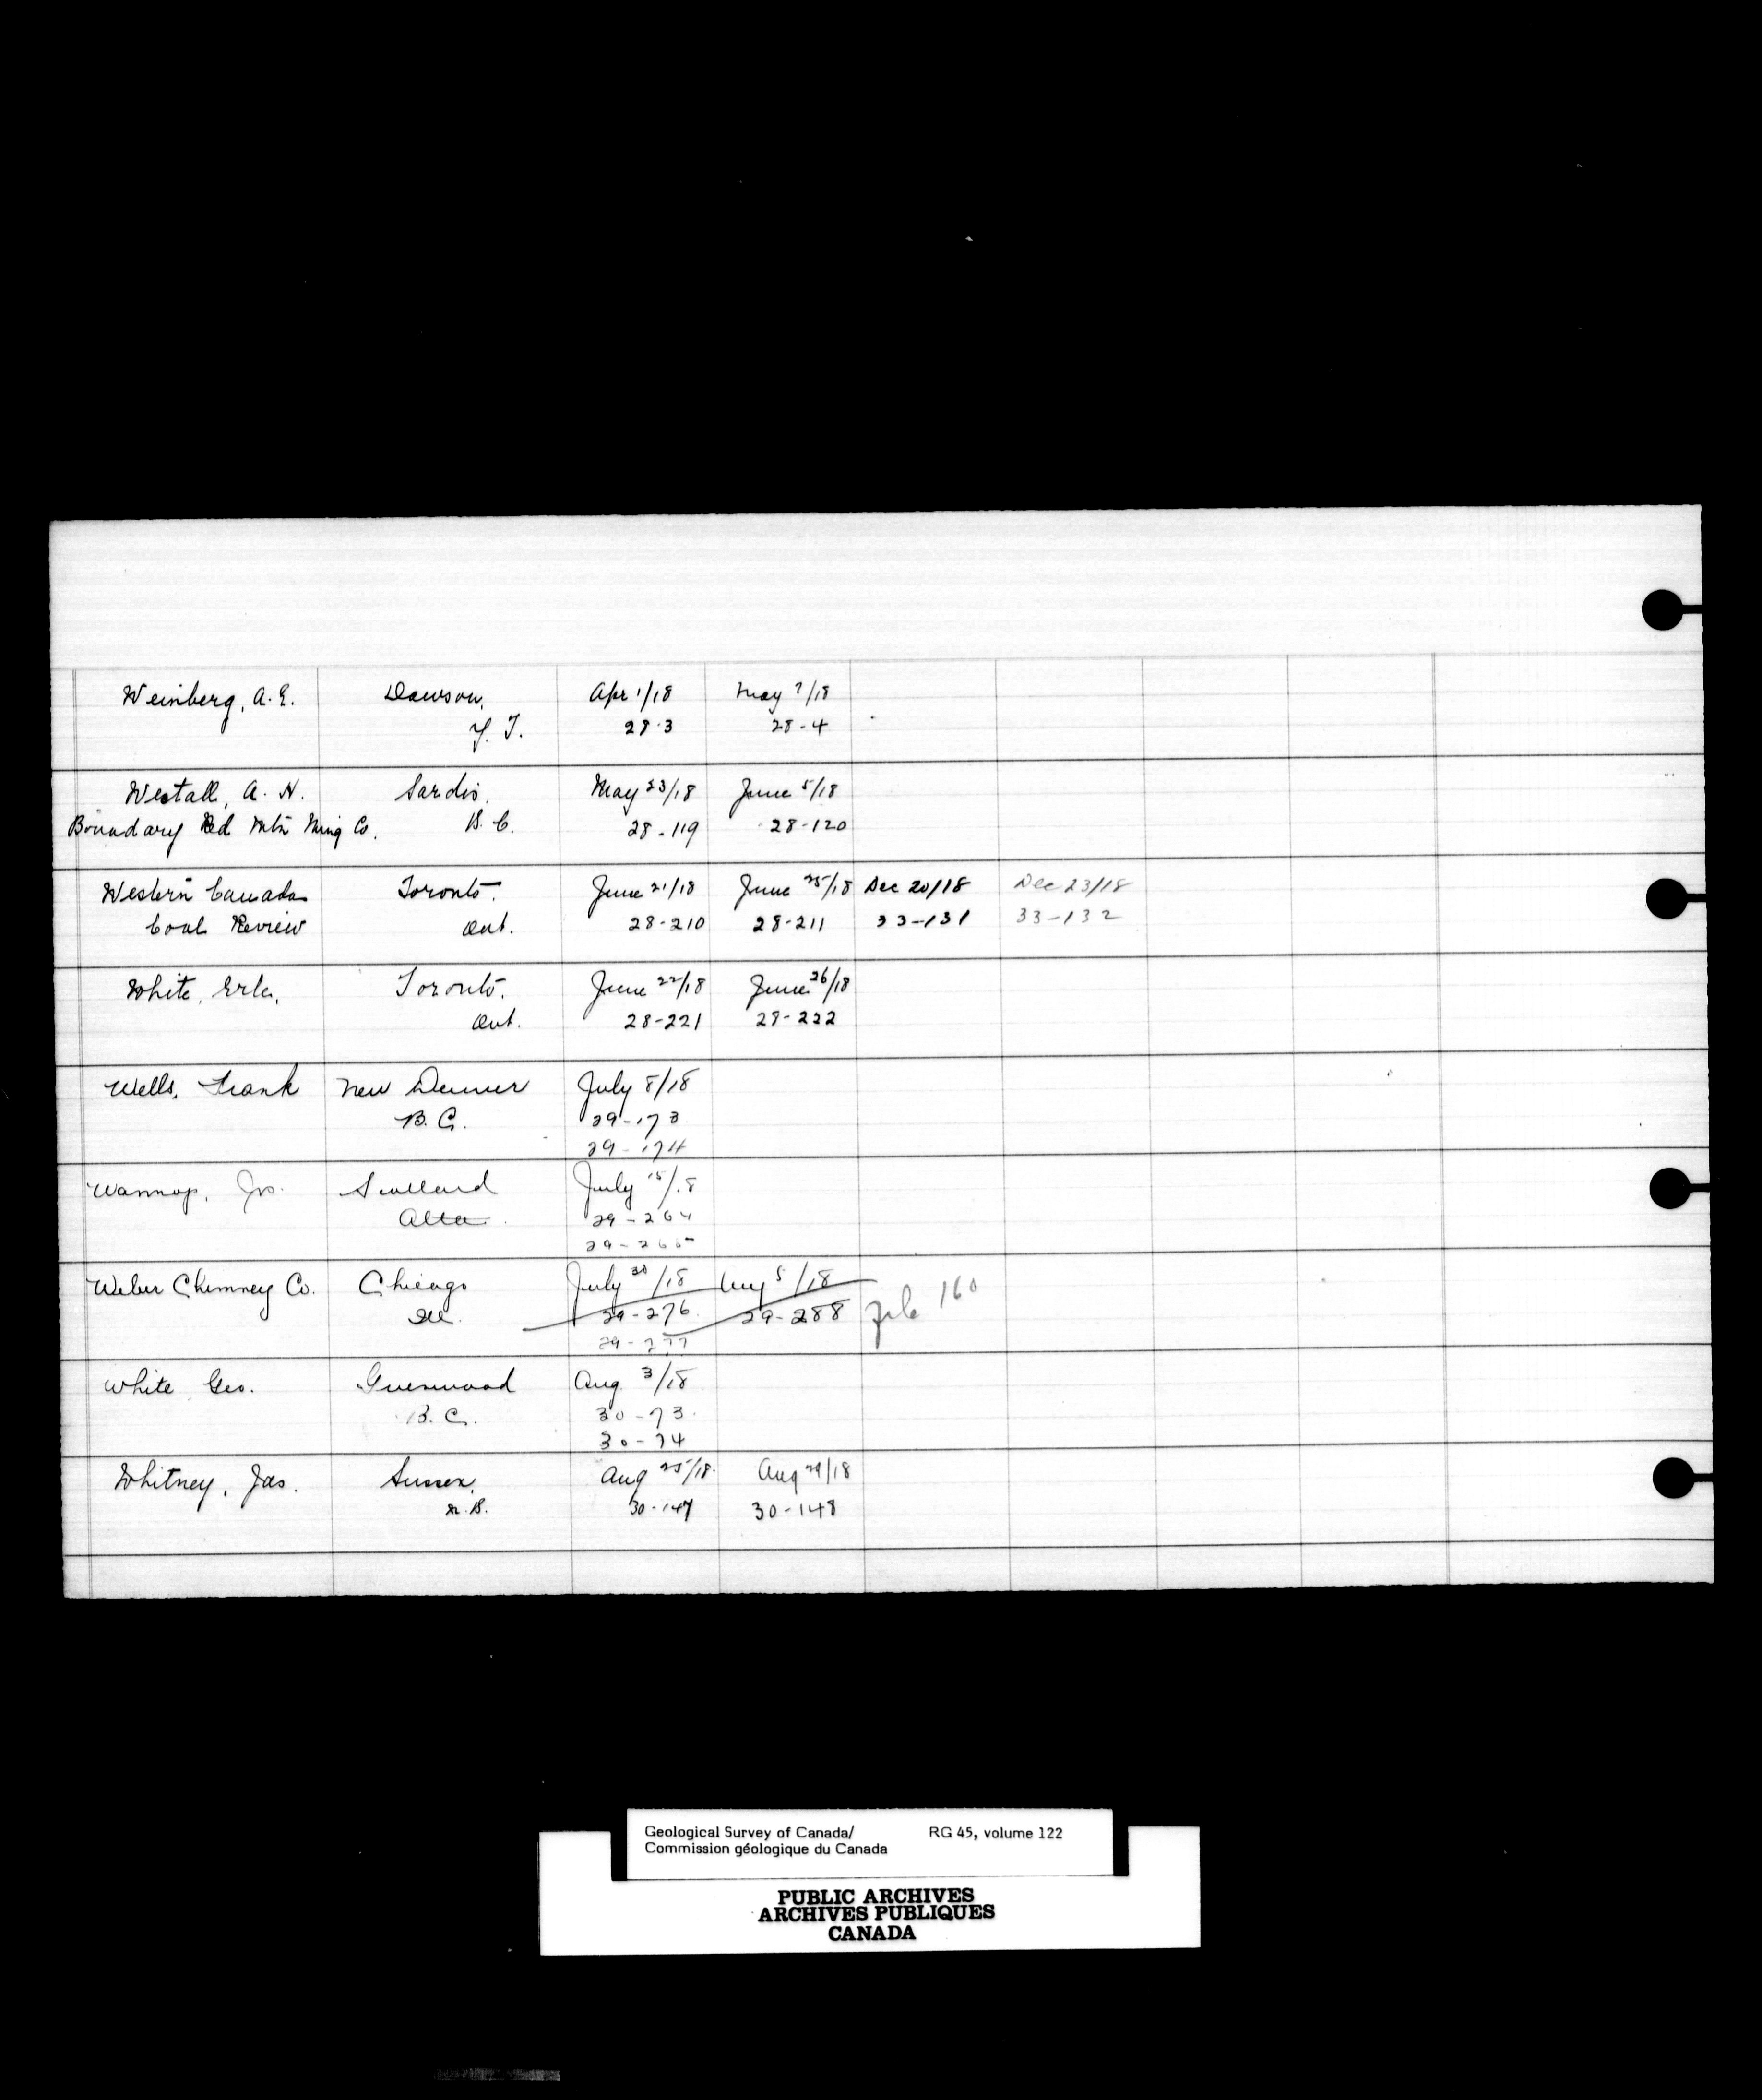 Weinberg, A. E. Dawson, Apr 1/18 May 7/18
Y. T. 28-3 28-4
Westall, A. H. Sardis, May 23/18 June 5/18
Boundary Red Mtn Ming Co. B. C. 28-119 28-120
Western Canada Toronto. June 21/18 June 25/18 Dec 20/18 Dec 23/18
Coal Review Ont. 28-210 28-211 33-131 33-132
White, Toronto, June 22/18 June 26/18
Ont. 28-221 28-222
Wells, Frank New Denver July 8/18
B. C. 29-173
29-174
Wannop, Scollard July 15/18
Alta. 29-264
29-265
Weber Chimney Co. Chicago July 30/18 Aug 5/18
Ill. 29-276 29-288 File 160
29-277
White Geo. Greenwood Aug. 3/18
B. C. 30-73
30-74
Whitney, Jas. Sussex, Aug 25/18 Aug 29/18
N. B. 30-147 30-148
Geological Survey of Canada/ RG 45, volume 122
Commission géologique du Canada
PUBLIC ARCHIVES
ARCHIVES PUBLIQUES
CANADA